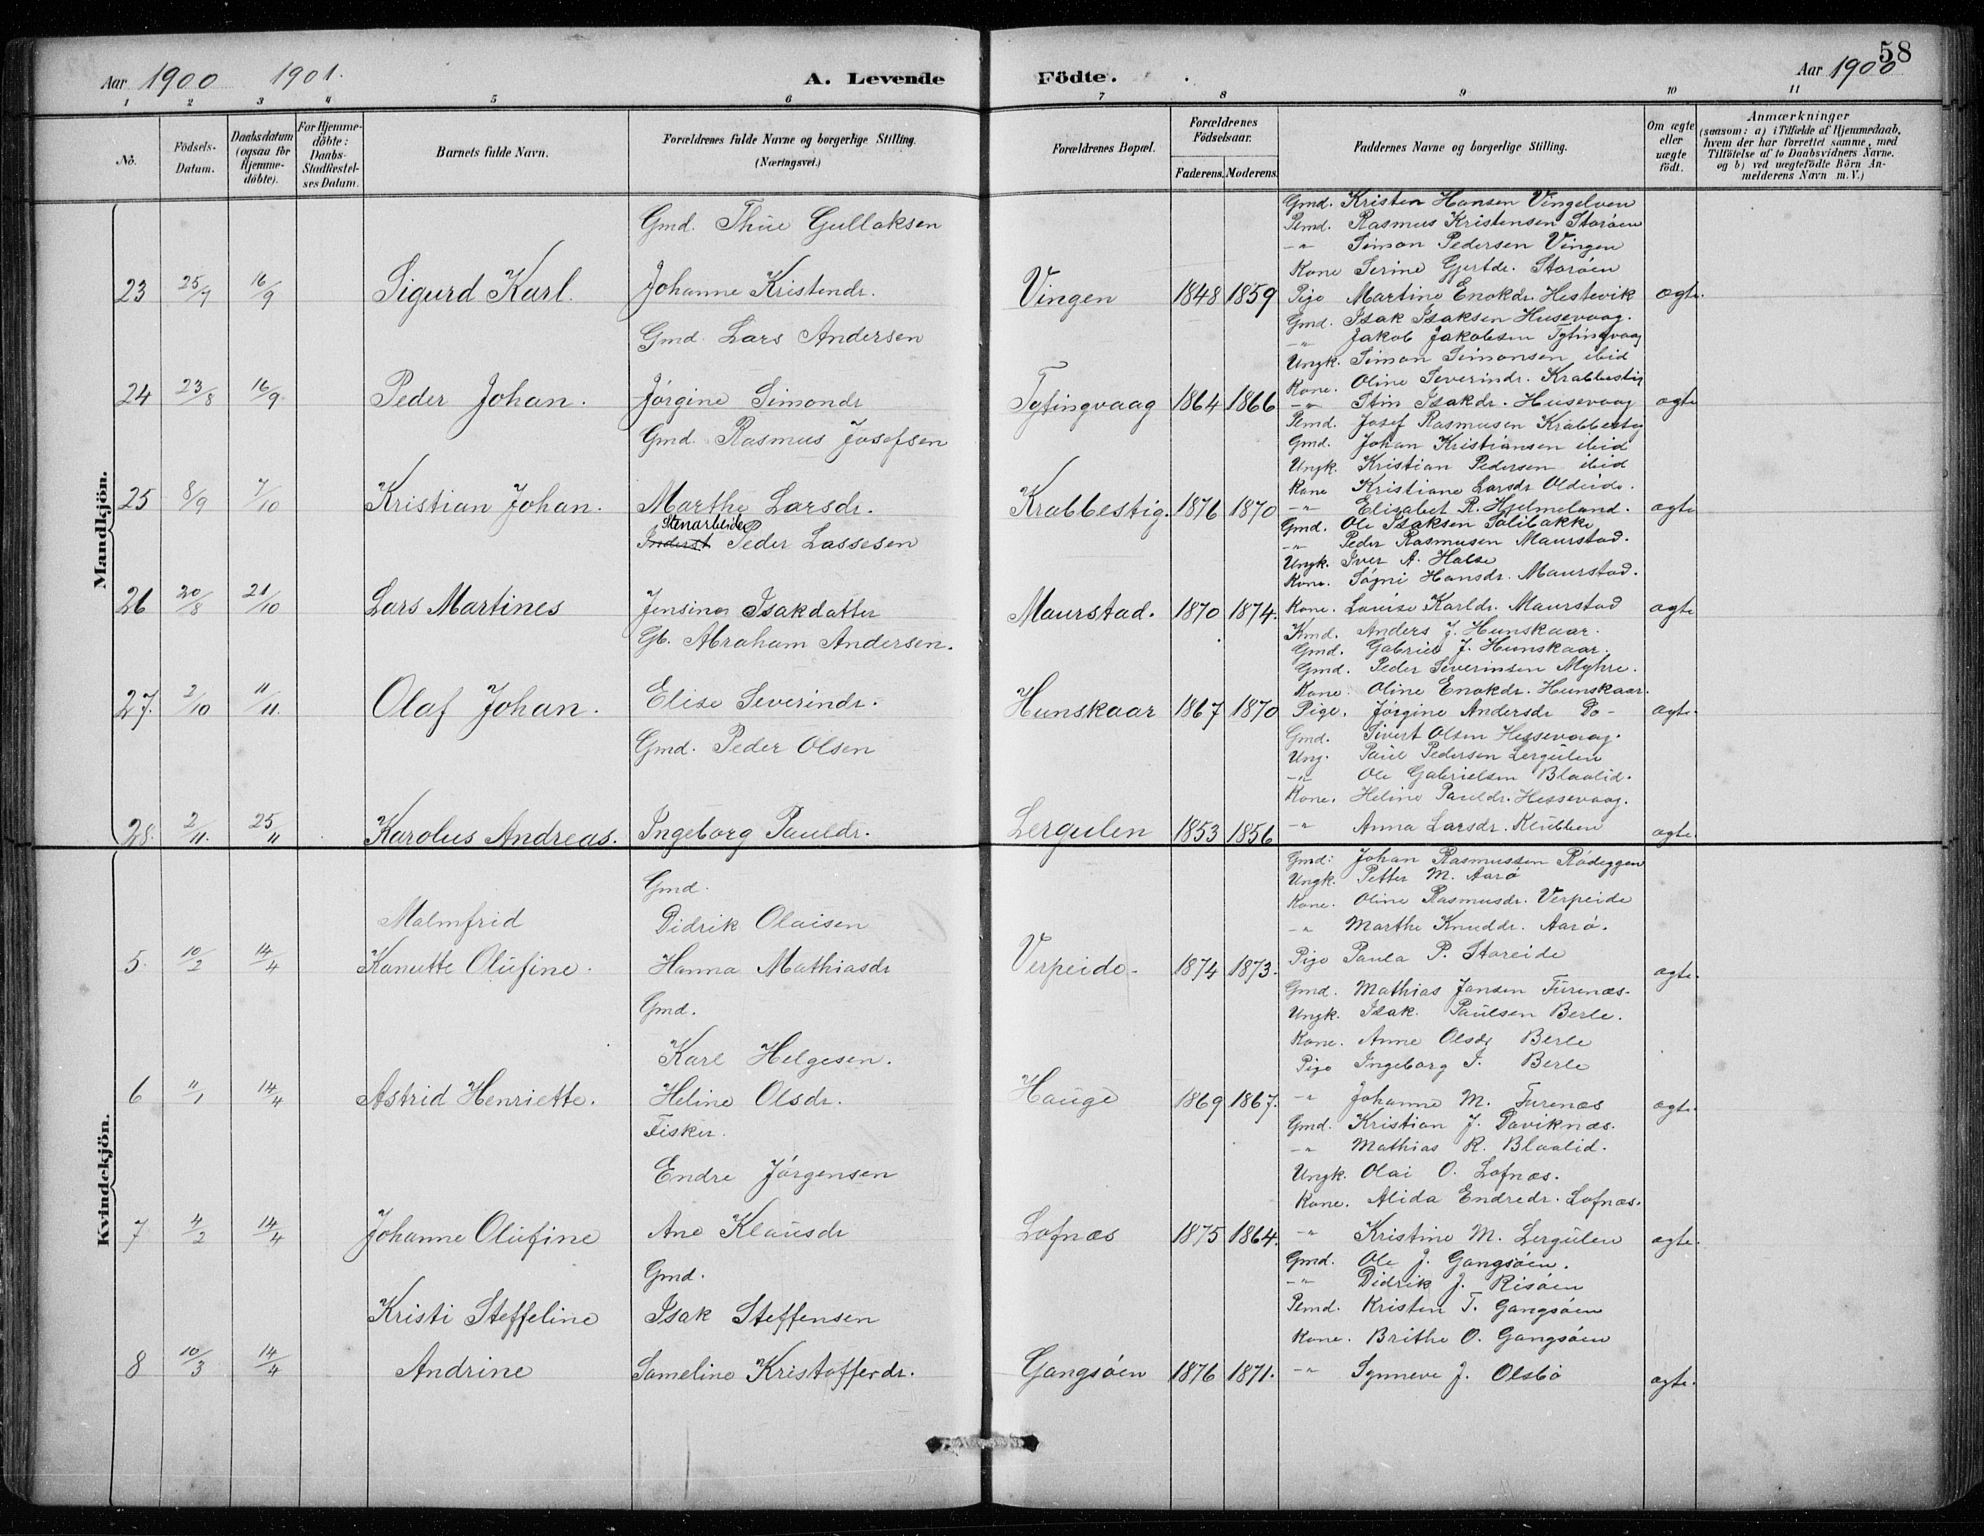 58
Aar 1900 1901. A. Levende Födte. Aar 1900
1 2 3 4 5 6 7 8 9 10 11
No. Födsels-Datum. Daabsdatum (ogsaa for Hjemme-döbte). For Hjemme-döbte: Daabs-Stadfæstel-ses Datum. Barnets fulde Navn. Forældrenes fulde Navne og borgerlige Stilling. (Næringsvei.) Forældrenes Bopæl. Forældrenes Födselsaar. Faderens. Moderens. Faddernes Navne og borgerlige Stilling. Om ægte eller uægte födt. Anmærkninger (saasom: a) i Tilfælde af Hjemmedaab, hvem der har forrettet samme, med Tilföielse af to Daabsvidners Navne. og b) ved uægtefödte Börn An-melderens Navn m. V.)
Mandkjön.
Gmd. Kristen Hansen Vingelven
Gmd. Thue Gullaksen Pemd. Rasmus Kristensen Storøen
-"- Simon Pedersen Vingen
Kone Serine Gjertdr. Storøen
23 25/7 16/9 Sigurd Karl. Johanne Kristendr. Vingen 1848 1859 Pige Martine Enokdr. Hestevik ægte.
Gmd. Isak Isaksen Husevaag.
Gmd. Lars Andersen -"- Jakob Jakobsen Tytingvaag
Ungk. Simon Simonsen ibid
Kone. Oline Severindr. Krabbestig
24 23/8 16/9 Peder Johan. Jørgine Simondr Tytingvaag 1864 1866 -"- Stin Isakdr. Husevaag ægte
Pemd. Josef Rasmusen Krabbestig
Gmd. Rasmus Josefsen Gmd. Johan Kristiansen ibid
Ungk. Kristian Pedersen ibid
Kone Kristiane Larsdr Oldeide.
25 8/9 7/10 Kristian Johan. Marthe Larsdr. Krabbestig. 1876 1870 -"- Elisabet R. Hjelmeland. ægte
Stenarbeider Gmd. Ole Isaksen Solibakke
Inderst Peder Lassesen -"- Peder Rasmusen Maurstad.
Ungk. Iver A. Halse
Kone. Søgni Hansdr. Maurstad.
26 20/8 21/10 Lars Martines Jensine Isakdatter Maurstad. 1870 1874. Kone. Louise Karldr. Maurstad ægte
Kmd. Anders J. Hunskaar.
Gb. Abraham Andersen. Gmd. Gabriel J. Hunskaar.
Gmd. Peder Severinsen Myhre.
Kone. Oline Enokdr. Hunskaar.
27. 2/10 11/11. Olaf Johan. Elise Severindr. Hunskaar 1867 1870 Pige. Jørgine Andersdr Do- ægte.
Gmd. Sivert Olsen Hessevaag.
Gmd. Peder Olsen Ung. Paul Pedersen Lergulen
-"- Ole Gabrielsen Blaalid.
Kone. Heline Pauldr. Hessevaag.
28. 2/11. 25/11 Karolus Andreas. Ingeborg Pauldr. Lergulen 1853 1856 -"- Anna Larsdr. Klubben ægte.
Kvindekjön.
Gmd: Johan Rasmussen Rødeggen
Gmd. Ungk. Petter M. Aarø
Malmfrid Didrik Olaisen Kone. Oline Rasmusdr. Verpeide
-"- Marthe Knuddr. Aarø.
5. 10/2 14/4 Kanutte Olufine. Hanna Mathiasdr Verpeide- 1874 1873. Pige Paula P. Storeide ægte.
Gmd. Gmd. Mathias Jansen Furenæs.
Ungk. Isak. Paulsen Berle.
Karl Helgesen. Kone. Anne Olsdr Berle
Pige Ingeborg I. Berle
6 11/1 14/4 Astrid Henriette. Heline Olsdr. Hauge 1869 1867. -"- Johanne M. Furenæs ægte.
Fisker. Gmd. Kristian J. Daviknæs.
-"- Mathias R. Blaalid.
Endre Jørgensen Ungk. Olai O. Lofnæs.
Kone. Alida Endredr. Lofnæs.
7 4/2 14/4 Johanne Olufine Ane Klausdr Lofnæs 1875 1864. -"- Kristine M. Lergulen ægte.
Gmd. Gmd. Ole J. Gangsøen.
-"- Didrik J. Risøen
Kristi Steffeline Isak Steffensen Pemd. Kristen T. Gangsøen
Kone. Brithe O. Gangsøen
8 10/3 14/4 Andrine Sameline Kristofferdr. Gangsøen 1876 1871. -"- Synneve J. Olsbø ægte.